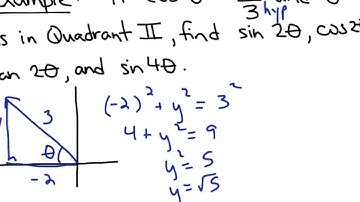 3 hyp
s in Quadrant II, find sin 2θ, cos2
an 2θ, and sin4θ.
3
θ
-2
(-2)² + y² = 3²
4 + y² = 9
y² = 5
y = √5